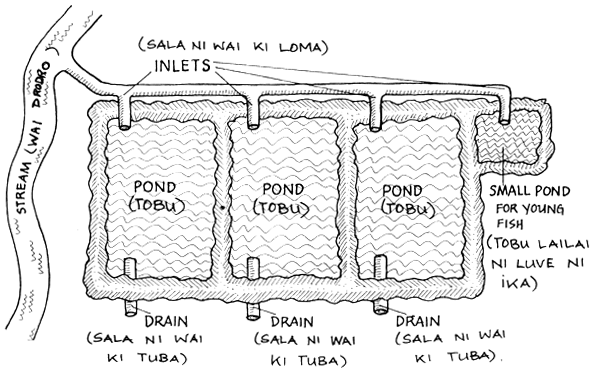 (SALA NI WAI KI LOMA)
INLETS
STREAM (WAI DRODRO)
POND
(TOBU)
POND
(TOBU)
POND
(TOBU)
SMALL POND
FOR YOUNG
FISH
(TOBU LAILAI
NI LUVE NI
IKA)
DRAIN
(SALA NI WAI
KI TUBA)
DRAIN
(SALA NI WAI
KI TUBA)
DRAIN
(SALA NI WAI
KI TUBA).